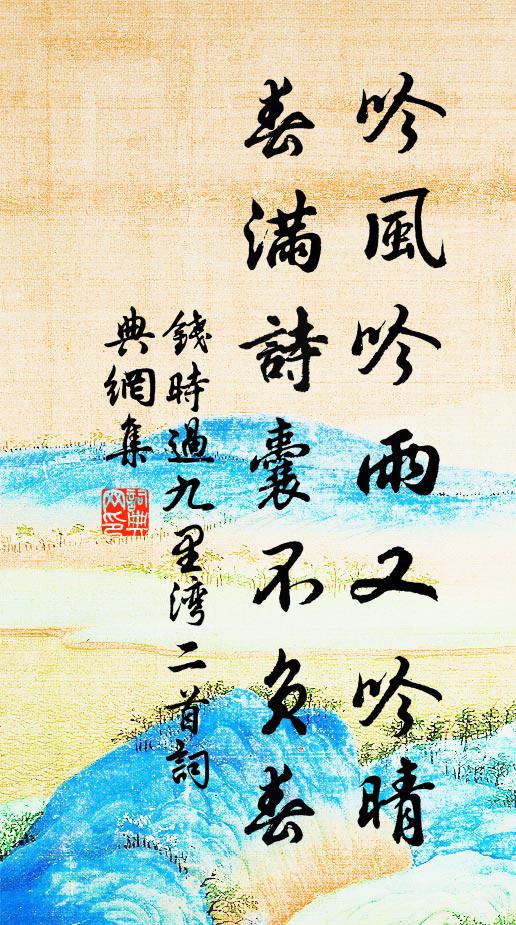 吟風吟雨又吟晴
春滿詩囊不負春
錢時過九里湾二首詞
典網集
詞典網印